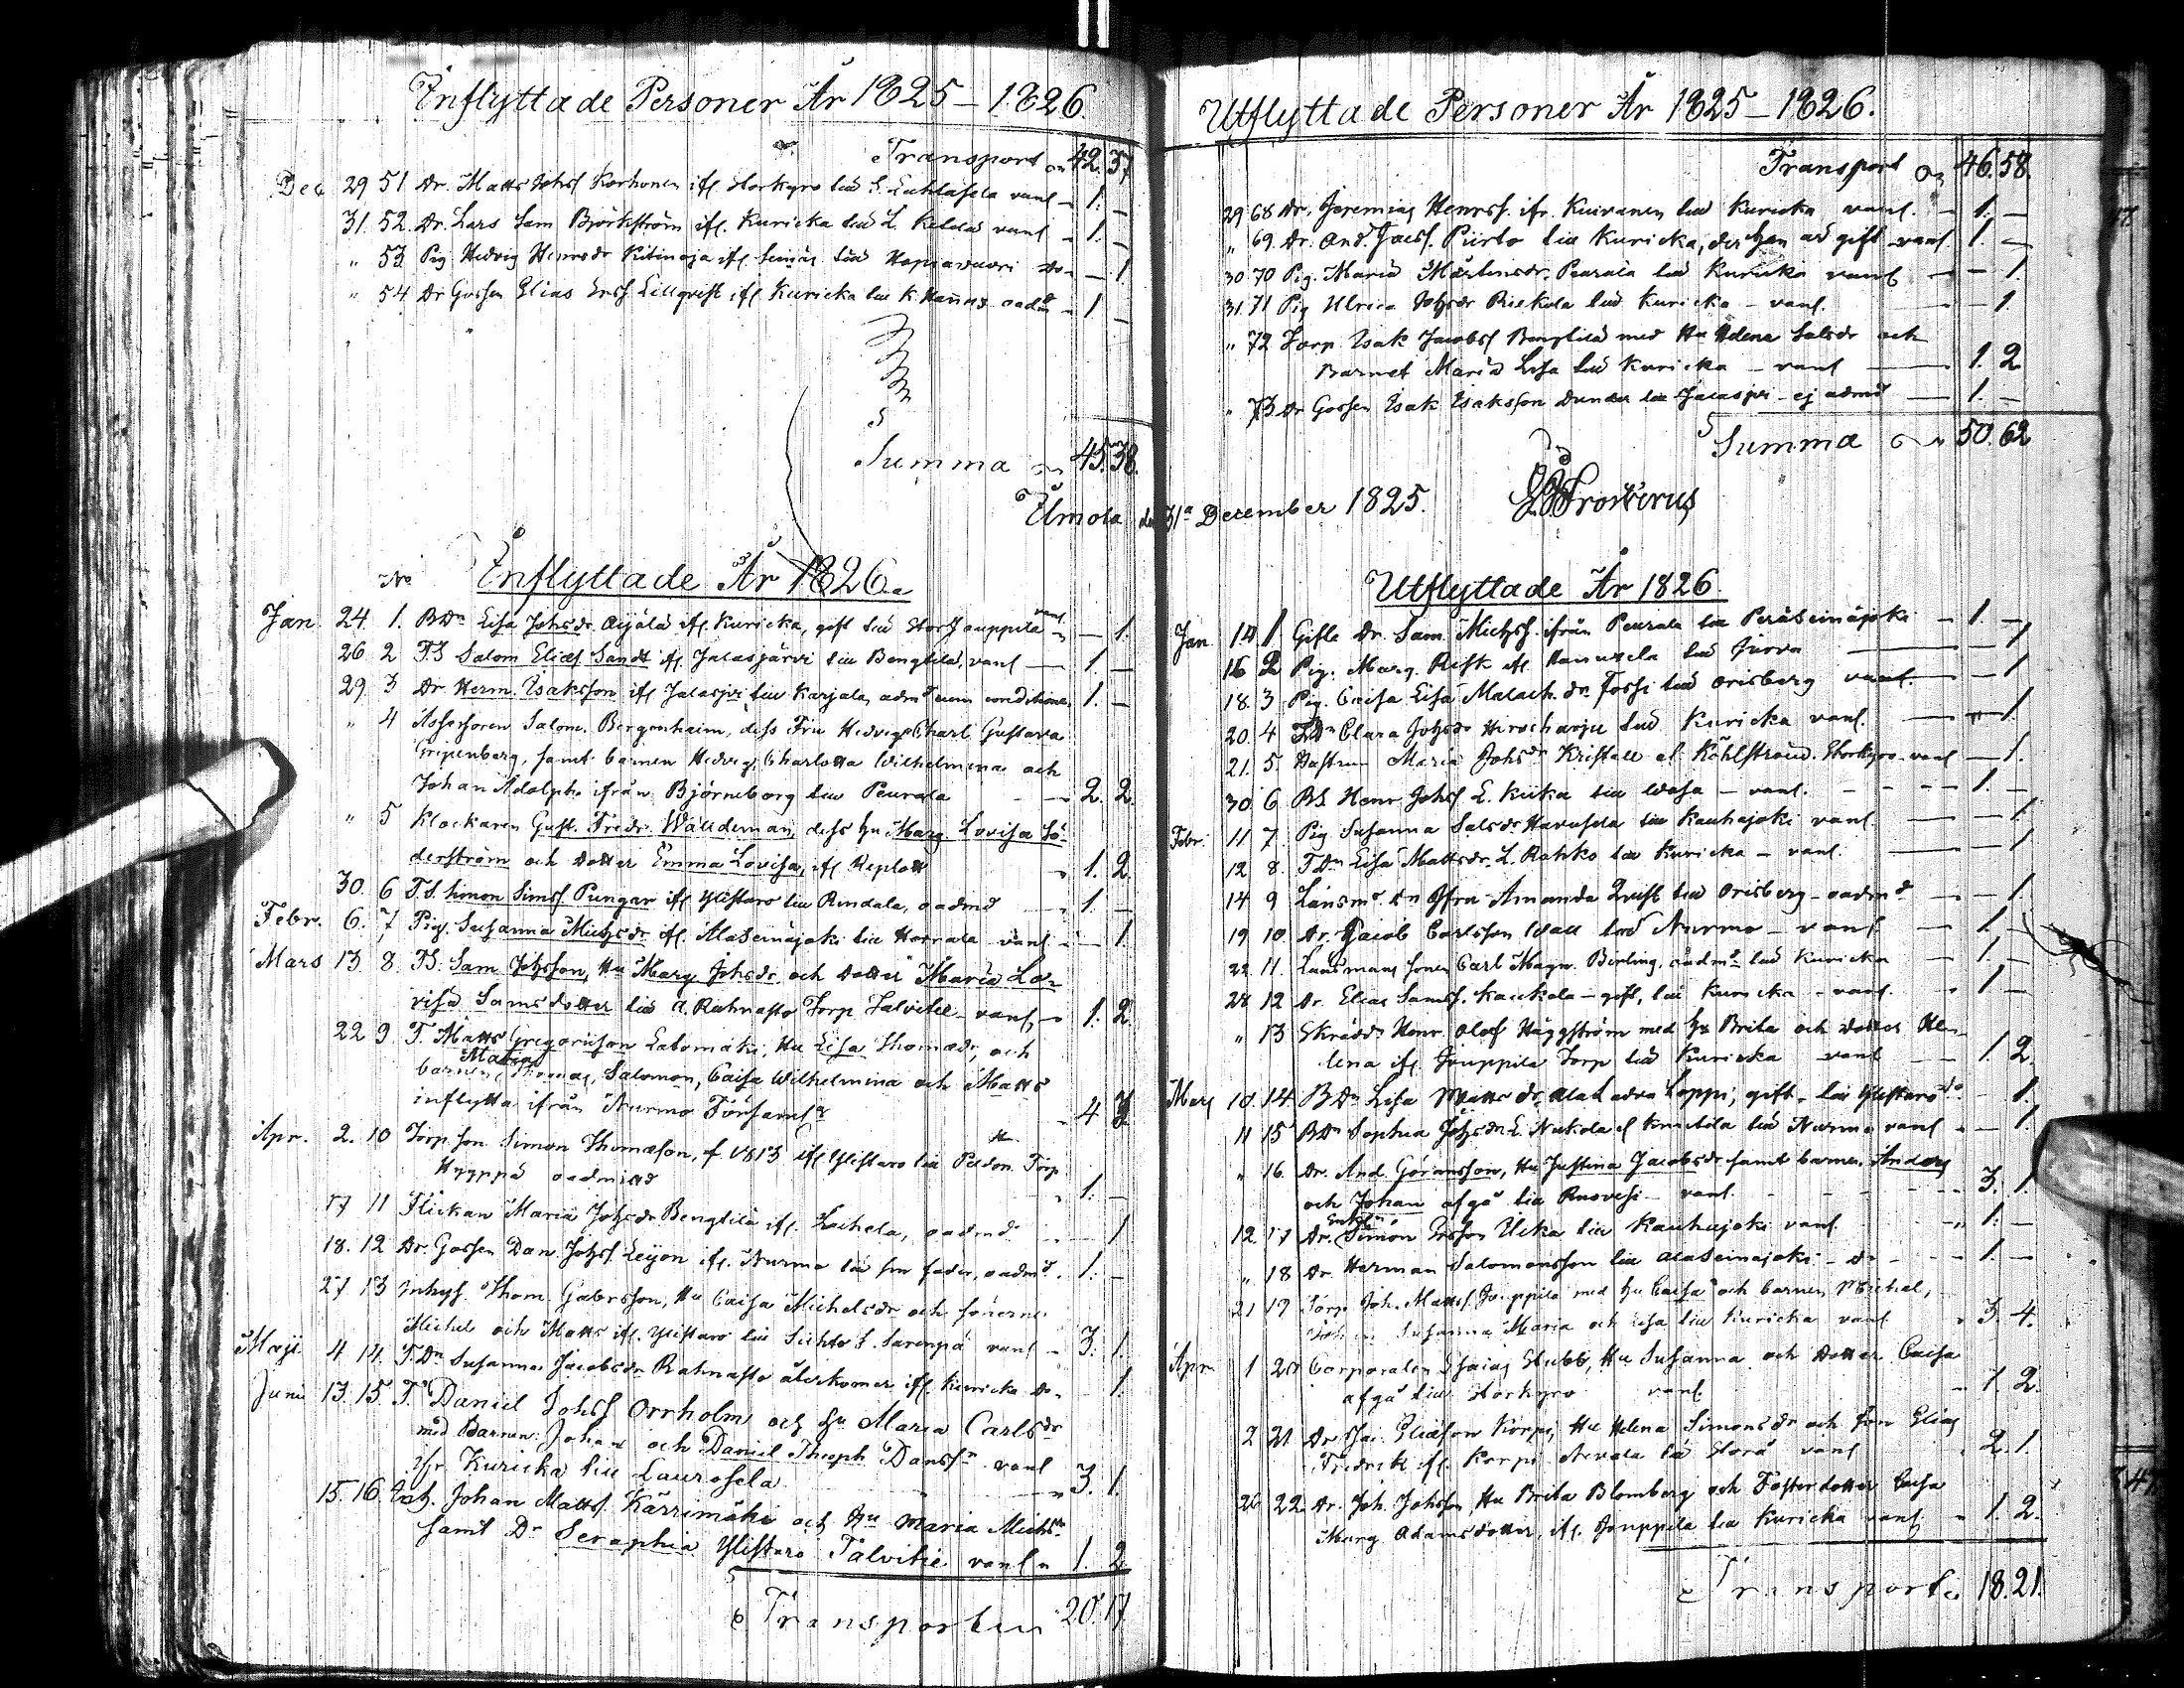 Inflyttade Personer År 1825–1826.
Transport 42. 37
Dec 29 51 Dr. Matts Johss Korhonen ifr. Storkyro vanl – 1. –
31. 52. Dr. Lars Sam Björkström ifr. Kuricka till L. vanl – 1. –
" 53 Pig. Hedvig Henrsdr ifr. till – 1.
" 54 Dr Gossen Elias Erss Lillqvist ifr. Kuricka till K. oadm 1 –
Summa 45. 38.
Ilmola den 31a December 1825.
No Inflyttade År 1826.
Jan. 24 1. BDr Lisa Johsdr Äijälä ifr. Kuricka, gift till vanl – 1.
26 2 TS Salom Eliæs Sandt ifr. Jalasjärvi till Bengtilä, vanl – 1. –
29. 3 Dr. Herm. Isaksson ifr Jalasjvi till Karjala, adm 1. –
" 4 Assessoren Salom. Bergenheim, dess Fru Hedvig Charl Gustava
Gripenberg, samt barnen Hedvig Charlotta Wilhelmina och
Johan Adolph ifrån Björneborg till Peurala 2. 2.
" 5 Klockaren Gust. Fredr. Walldeman, dess hu Marg. Lovisa Sö-
derström och dotter Emma Lovisa, ifr Replott 1. 2.
30. 6 T.S. Simon Simss Pungar ifr Ylistaro till Rindala, oadmd 1. –
Febr. 6. 7 Pig. Susanna Michsdr ifr. Alaseinäjoki till vanl – 1.
Mars 13. 8. TS. Sam Johsson, Hu Marg Johsdr och dotter Maria Lo-
visa Samsdotter till A. Rahnasto Torp Talvitie – vanl, – 1. 2
22 9 T. Matts Gregoriison Latomäki, Hu Lisa Thomædr, och
Matias
barnen Thomas, Salomon, Caisa Wilhelmina och Matts
inflytta ifrån Nurmo Församl. 4 3
Apr. 2. 10 Torp. son Simon Thomæson, f. 1813 ifr Ylistaro till Torp
Hyyppä oadmierd 1. –
17 11 Flickan Maria Johsdr Bengtilä ifr. oadmd – 1
18. 12 Dr. Gossen Dan. Johss Leijon ifr. Nurmo till sin fader, oadmd. 1. –
27 13 Inhys. Thom. Gabrsson, Hu Caisa Michelsdr och sönerne
Michel och Matts ifr. Ylistaro till vanl – 3. 1.
Maji. 4 14. TDr Susanna Jacobsdr Rahnasto återkomer ifr Kuricka do – 1.
Juni 13. 15. T. Daniel Johss Orrholm och hu Maria Carlsdr
med Barnen Johan och Daniel Theoph Danss vanl
ifr Kuricka till Laurosela 3. 1.
15. 16. Johan Matts. Kärrimäki och Hu Maria Michsdr
samt Dr Seraphia Ylistaro Talvitie vanl 1. 2
Transport 20. 17
Utflyttade Personer År 1825–1826.
Transport 46. 58.
29 68 Dr. Jeremias Henrss. ifr. Kuivanen till Kuricka vanl. – 1. –
" 69. Dr. And. Jacss. Piirto till Kuricka, der han är gift – vanl 1. –
30 70 Pig. Maria Mårtensdr. Peurala till Kuricka vanl – 1.
31. 71 Pig Ulrica Johsdr Riekola till Kuricka – vanl. – 1.
" 72 Torp. Isak Jacobss Bengtilä med Hu Helena Salsdr och
Barnet Maria Lisa till Kuricka – vanl 1. 2
" 73 Dr Gossen Isak Isaksson till Jalasjvi – ej admd 1. –
Summa 50. 62
Utflyttade År 1826.
Jan. 14 1 Gifte Dr. Sam. Michss. ifrån Peurala till Peräseinäjoki – 1. –
16 2 Pig. Marg. Risk ifr. Hannuxela till – 1
18. 3 Pig. Caisa Lisa Malach. dr. Fossi till Orisberg vanl. – 1
20. 4 TDr Clara Johsdr till Kuricka vanl. – 1.
21. 5. Hustrun Maria Johsdr Kristall Storkyro – vanl – 1.
30. 6 BS Henr. Johss L. Kiika till Wasa – vanl. – 1. –
Febr. 11 7. Pig Susanna Salsdr Havusela till Kauhajoki vanl – 1
12 8. TDr Lisa Mattsdr. L. Rahko till Kuricka – vanl. – 1
14 9 Amanda till Orisberg – oadmd – 1.
19 10. Dr. Jacob Carlsson Wall till Nurmo – vanl – 1. –
22. 11. Länsmans sonen Carl Magn. Berling, oadmd till Kuricka – 1. –
28 12 Dr. Elias Samss. Kaukola – gift, till Kuricka – vanl. – 1 –
" 13 Skrädd. Henr. Olof Häggström med hu Brita och dotter He-
lena ifr. Jouppila Torp till Kuricka vanl – 1. 2.
Mars 10. 14. BDr Lisa Mattsdr. Loppi, gift – till Ylistaro do – 1.
11 15 BDr Sophia Johsdr L. Nukola till Nurmo vanl – 1.
" 16. Dr. And. Göransson, Hu Justina Jacobsdr samt barnen Anders
och Johan afgå till Ruovesi – vanl. – 3. 1.
Enkl.
12. 17 Dr. Simon Ersson till Kauhajoki vanl. 1. –
" 18 Dr. Herman Salomonsson till Alaseinäjoki – do – 1. –
21 19 Torp. Joh. Matts. Jouppila med hu Caisa och barnen Michel,
Susanna Maria och Lisa till Kuricka vanl 3. 4.
Apr. 1 20 Corporalen Esaias Stubb, Hu Susanna och dotter Caisa
afgå till Storkyro vanl. 1. 2.
2 21 Dr. Eliæson Korpi, Hu Helena Simonsdr och son Elias
Fredrik ifr. Korpi Nevala till Storå vanl 2. 1.
26 22. Dr. Joh. Johsson, Hu Brita Blomberg och Fosterdotter Caisa
Marg Adamsdotter, ifr. Jouppila till Kuricka vanl – 1. 2.
Transport 18. 21.